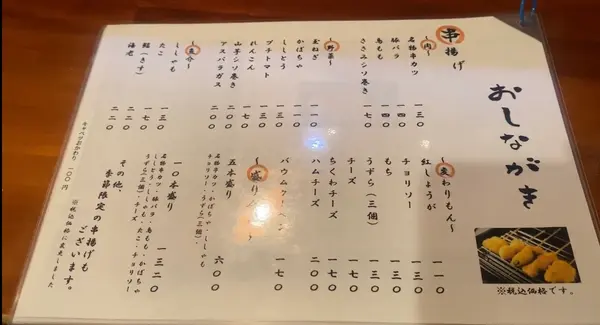 おしながき
串揚げ
〜肉〜
名物串カツ 一三〇
豚バラ 一四〇
鳥もも 一四〇
ささみシソ巻き 一七〇
〜野菜〜
玉ねぎ 一一〇
かばちゃ 一一〇
ししとう 一三〇
プチトマト 一三〇
れんこん 一三〇
山芋シソ巻き 二〇〇
アスパラガス 二〇〇
〜魚介〜
ししゃも 一三〇
たこ 一七〇
鱚(きす) 二二〇
海老 二二〇
キャベツおかわり 一〇〇円
〜変わりもん〜
紅しょうが 一一〇
チョリソー 一三〇
もち 一三〇
うずら(三個) 一三〇
チーズ 一七〇
ちくわチーズ 一七〇
ハムチーズ 二〇〇
バウムクーヘン 一七〇
〜盛り
五本盛り 六〇〇
名物串カツ・かばちゃ・ししゃも
チョリソー・うずら(三個)
一〇本盛り 一三二〇
名物串カツ・豚バラ・鳥もも・かばちゃ
ししとう・ししゃも・たこ・チョリソー
うずら(三個)・チーズ
その他、
季節限定の串揚げも
ございます。
※税込価格に変更しました
※税込価格です。